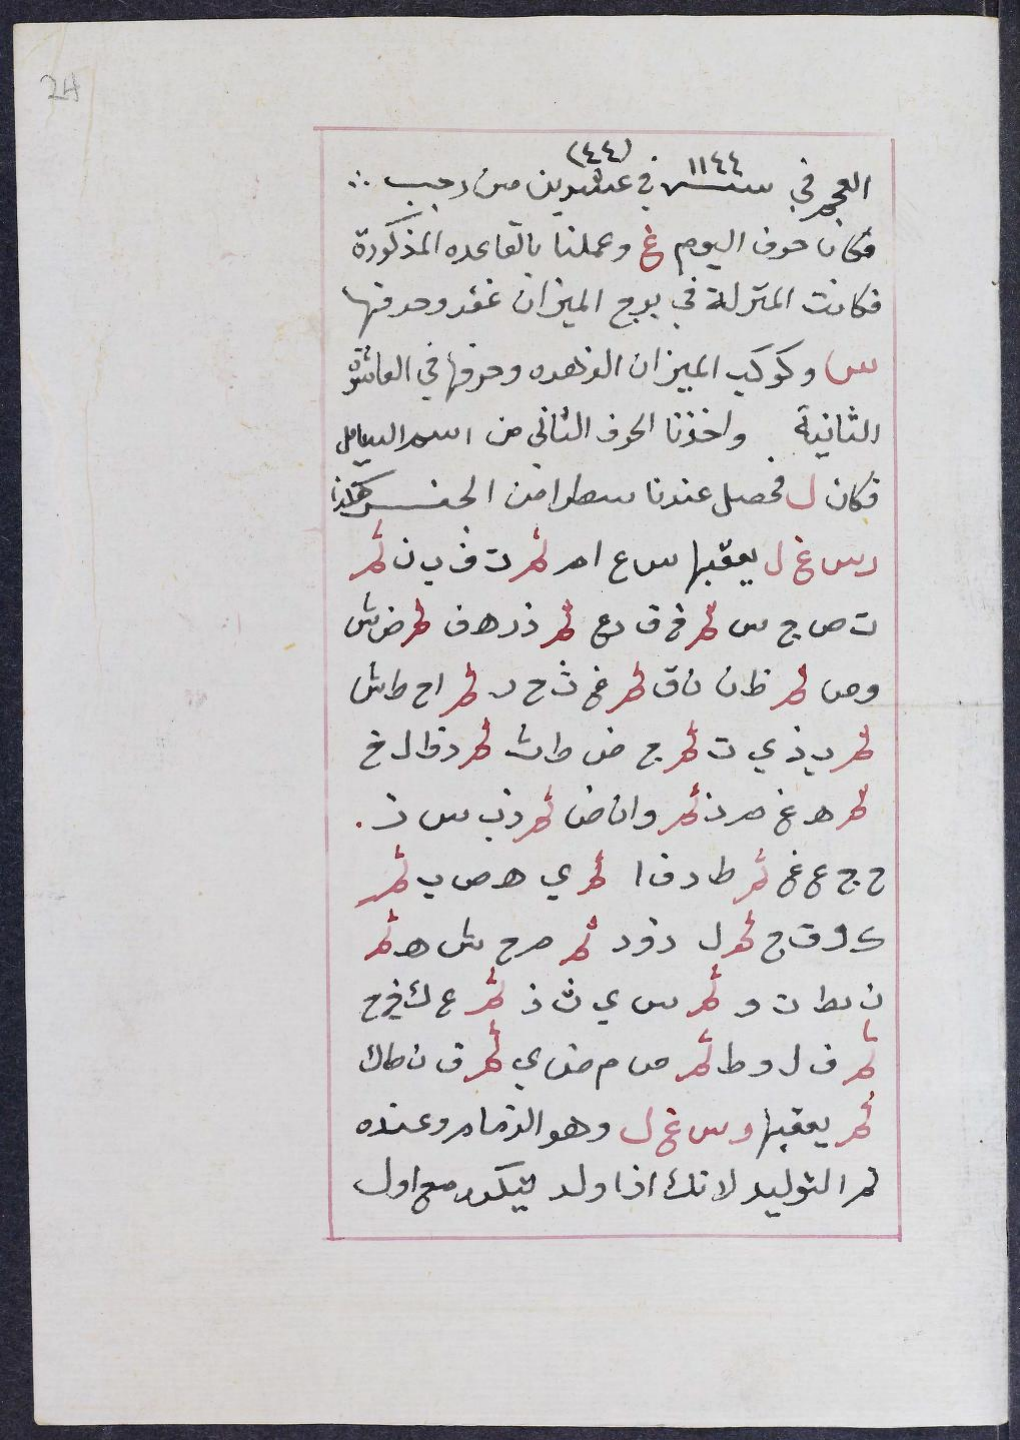 24
(٤٤)
العجم في سنة ١١٤٤ في عشرين من رجب
فكان حرف اليوم غ وعملنا بالقاعده المذكورة
فكانت المنزلة في برج الميزان غفر وحرفها
س وكوكب الميزان الزهره وحرفها في العاشرة
الثانية واخذنا الحرف الثاني من اسم السايل
فكان ل فحصل عندنا سطرا من الجفر هكذا
ر س غ ل يعقبها س ع ا م ثم ت ف ب ن ثم
ت ص ج س ثم خ ق د ع ثم ذ ر ه ف ثم ض ش
و ص ثم ظ ت ز ق ثم غ ث ح ر ثم ا خ ط ش
ثم ب ذ ي ت ثم ج ض ك ث ثم د ظ ل خ
ثم ه غ م ذ ثم و ا ن ض ثم ز ب س ظ
ح ج ع غ ثم ط د ف ا ثم ي ه ص ب ثم
ك و ق ج ثم ل ز ر د ثم م ح ش ه ثم
ن ط ت و ثم س ي ث ز ثم ع ك خ ح
ثم ف ل ذ ط ثم ص م ض ي ثم ق ن ظ ك
ثم يعقبها ر س غ ل وهو الزمام وعنده
تم التوليد لانك اذا ولد يتكرر مع اول